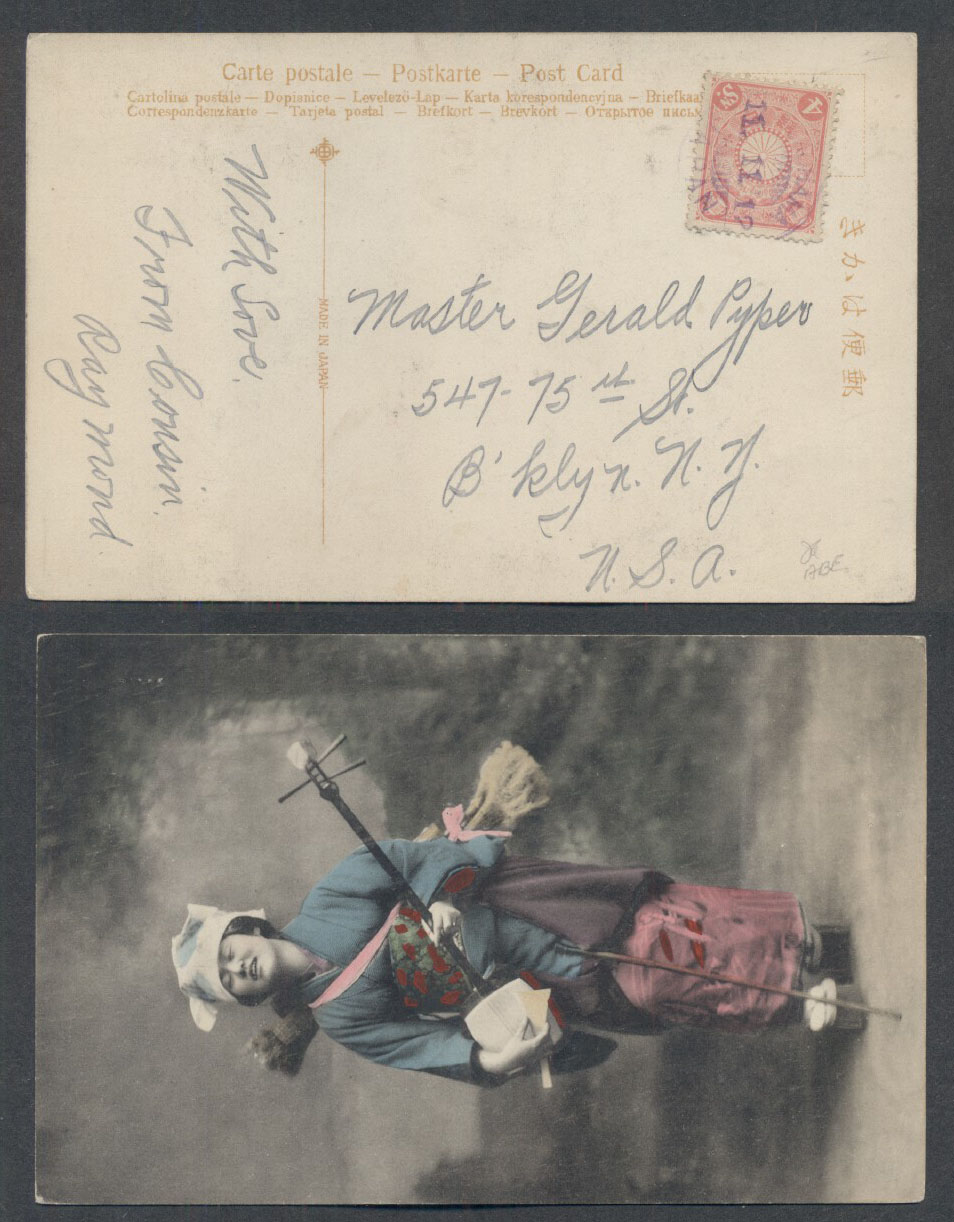 Carte postale — Postkarte — Post Card
Cartolina postale — Dopisnice — Levelezö-Lap — Karta korespondencyjna — Briefkaa
Correspondenzkarte — Tarjeta postal — Brefkort — Brevkort — Открытое письм
郵便はかき
MADE IN JAPAN
4 Sn.
11 11 12
With Love.
From Cousin.
Raymond.
Master Gerald Pyper
547-75 st St.
B'klyn. N.Y.
U.S.A.
ABE.